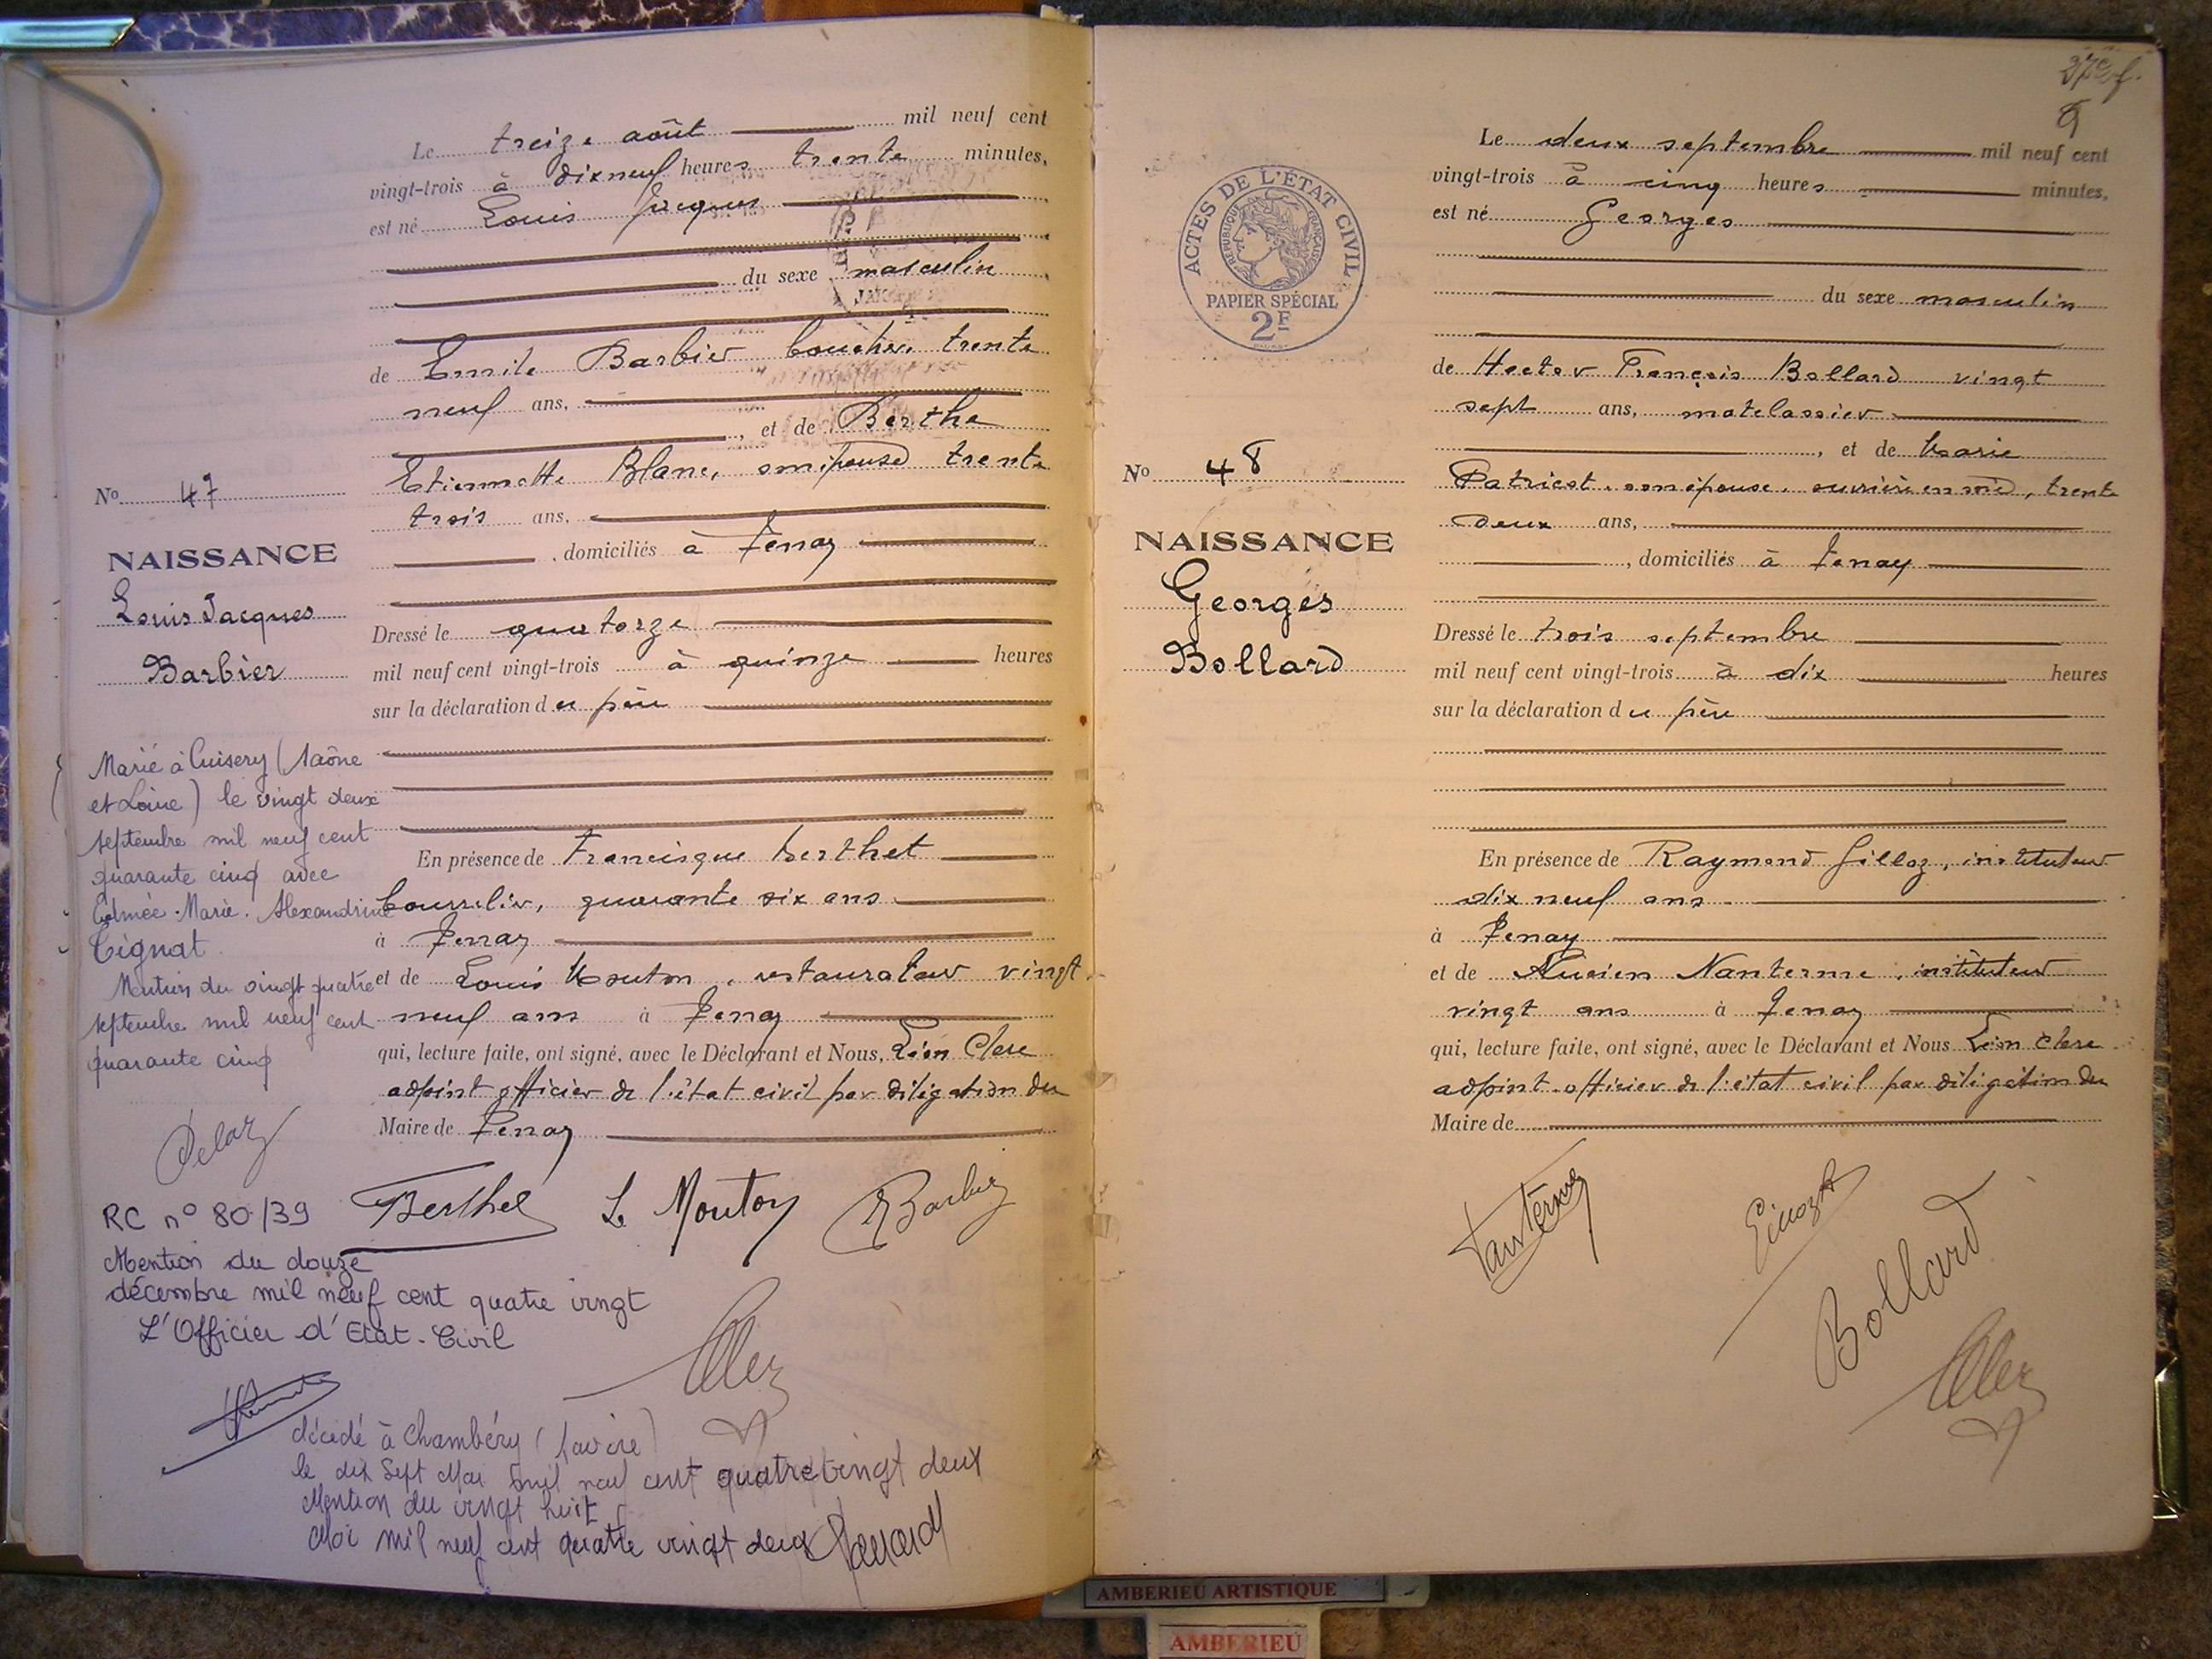 Le treize août mil neuf cent
vingt-trois à dixneuf heures trente minutes,
est né Louis Jacques
du sexe masculin
de Emile Barbier boucher, trente
neuf ans,
, et de Berthe
Etiennette Blanc, son épouse trente
trois ans,
, domiciliés à Tenay
Dressé le quatorze
mil neuf cent vingt-trois à quinze heures
sur la déclaration du père
En présence de Francisque Berthet
bourrelier, quarante six ans
à Tenay
et de Louis Mouton, restaurateur vingt
neuf ans à Tenay
qui, lecture faite, ont signé, avec le Déclarant et Nous, Léon Clerc
adjoint officier de l'état civil par délégation du
Maire de Tenay
No 47
NAISSANCE
Louis Jacques
Barbier
Marié à Cuisery (Saône
et Loire) le vingt deux
septembre mil neuf cent
quarante cinq avec
Edmée. Marie. Alexandrine
Tignat
Mention du vingt quatre
septembre mil neuf cent
quarante cinq
Delaz
Berthet Ls Mouton EBarbier
RC n° 80/39
Mention du douze
décembre mil neuf cent quatre vingt
L'Officier d'Etat-Civil
décédé à Chambéry (Savoie)
le dix Sept Mai mil neuf cent quatre vingt deux
Mention du vingt huit
Mai mil neuf cent quatre vingt deux
37e f.
ACTES DE L'ÉTAT CIVIL
RÉPUBLIQUE FRANÇAISE
PAPIER SPÉCIAL
2F
Le deux septembre mil neuf cent
vingt-trois à cinq heures minutes,
est né Georges
du sexe masculin
de Hector François Bollard vingt
sept ans, matelassier
, et de Marie
Patricot, son épouse, ouvrière en soie, trente
deux ans,
, domiciliés à Tenay
Dressé le trois septembre
mil neuf cent vingt-trois à dix heures
sur la déclaration du père
En présence de Raymond Gilloz, instituteur
dix neuf ans
à Tenay
et de Lucien Nanterme, instituteur
vingt ans à Tenay
qui, lecture faite, ont signé, avec le Déclarant et Nous Léon Clerc
adjoint officier de l'état civil par délégation du
Maire de
No 48
NAISSANCE
Georges
Bollard
Nanterme
Gilloz
Bollard
AMBERIEU ARTISTIQUE
AMBERIEU